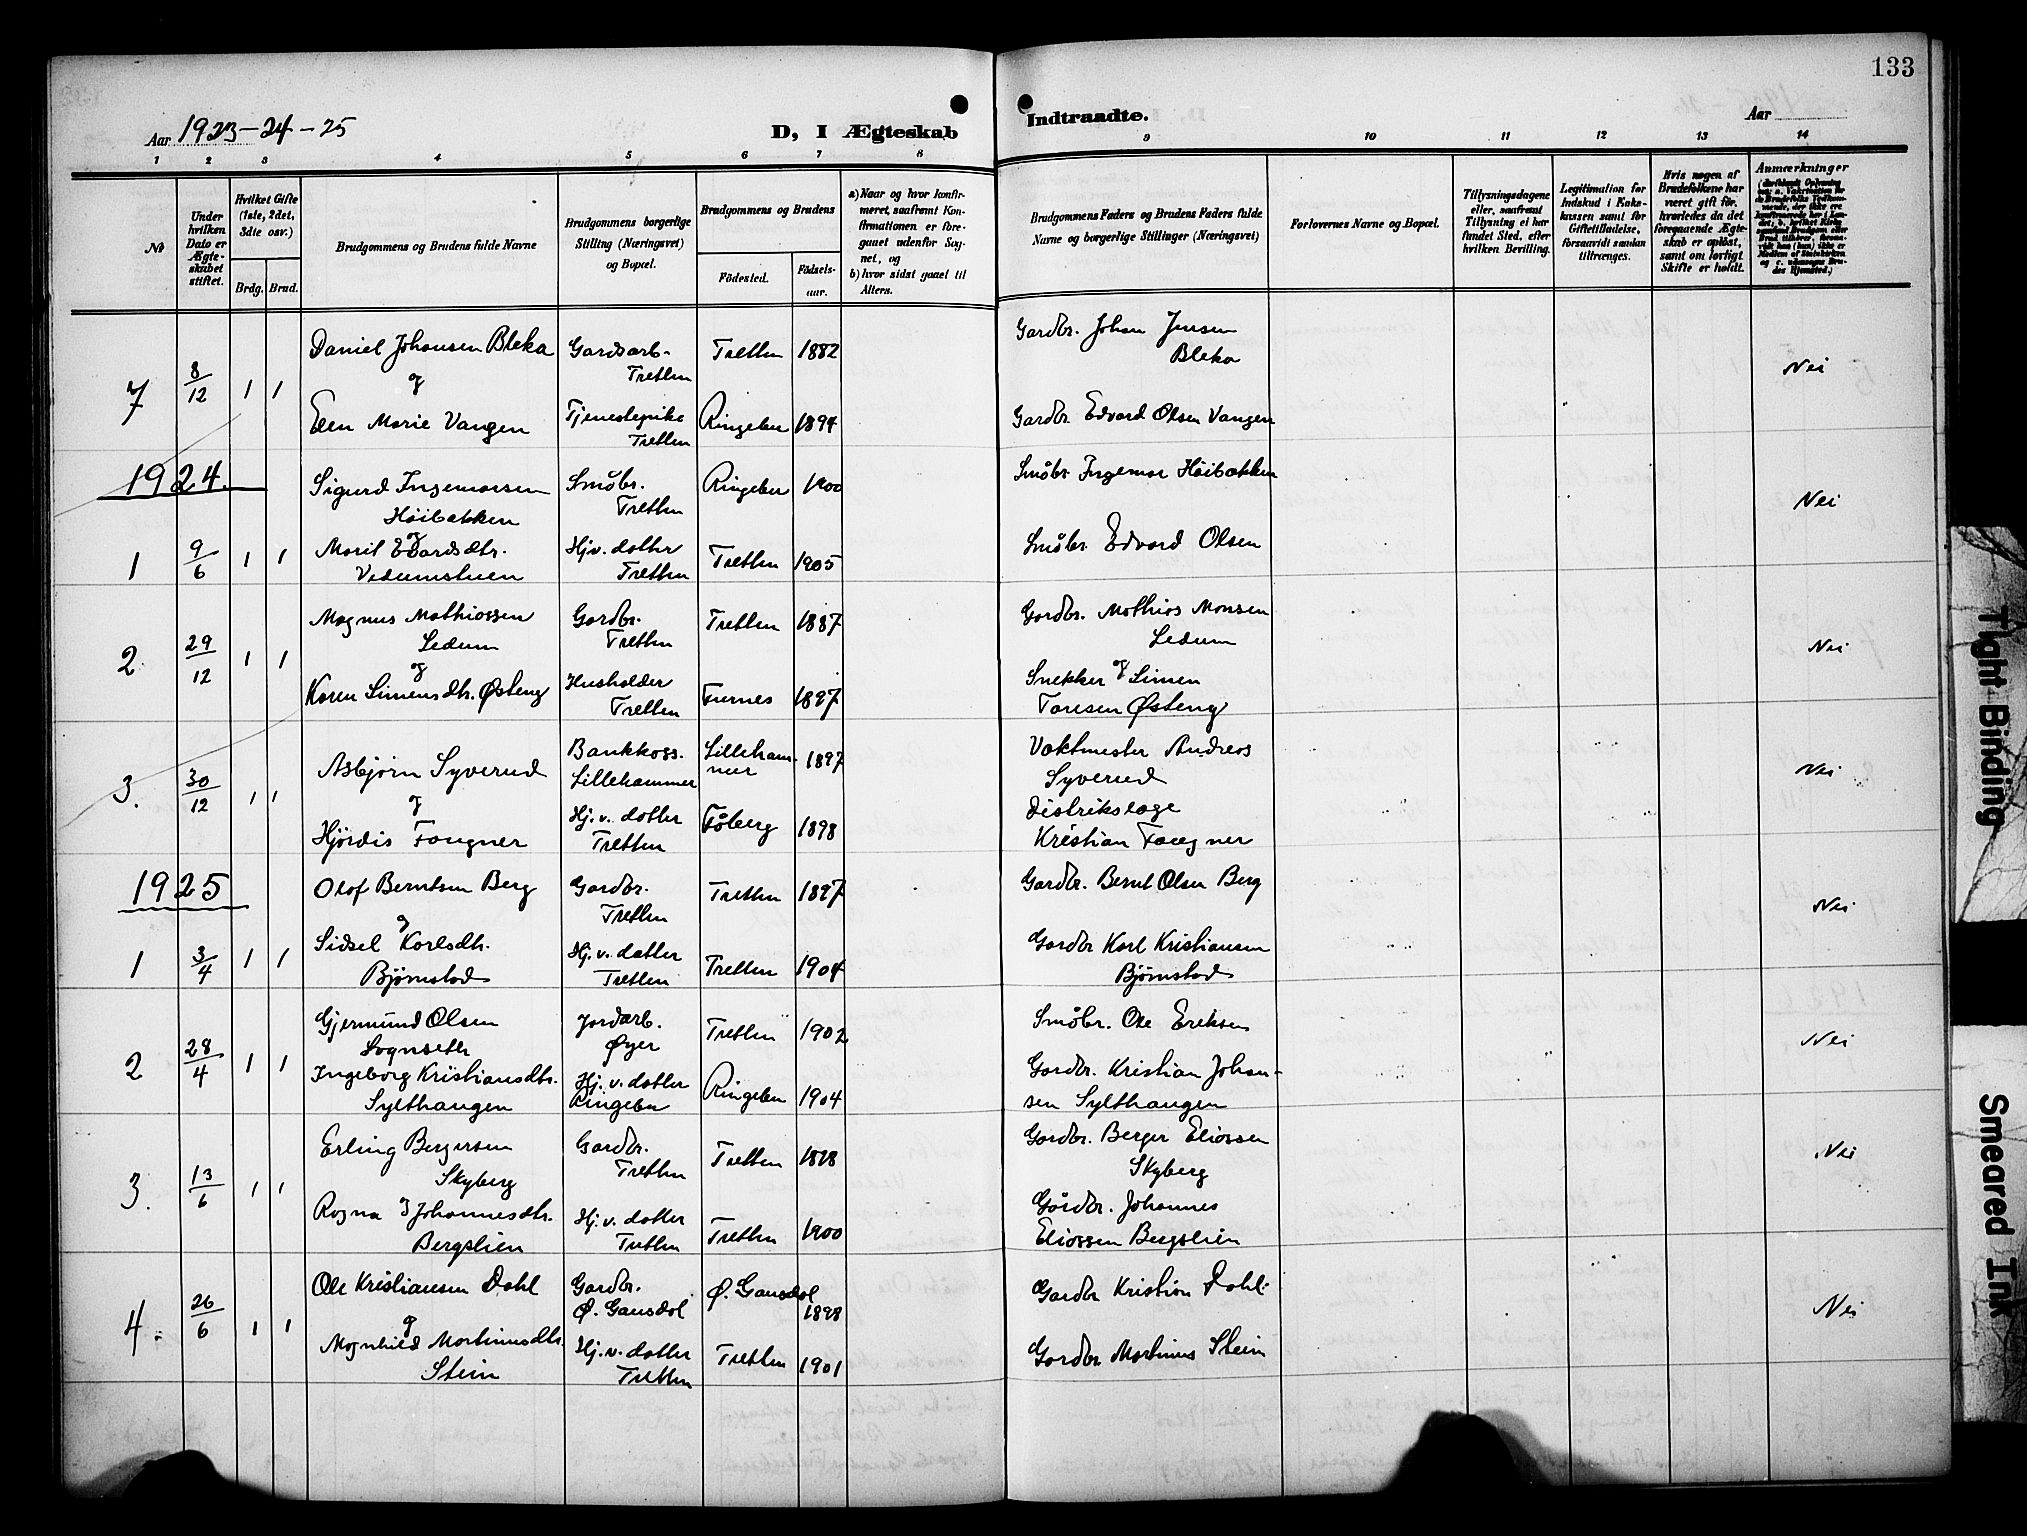 133
Aar 1923-24-25
D, I Ægteskab
Indtraadte.
Aar
1 2 3 4 5 6 7 8 9 10 11 12 13 14
No
Under hvilken Dato er Ægteskabet stiftet.
Hvilket Gifte (1ste, 2det, 3die osv.)
Brdg. Brud.
Brudgommens og Brudens fulde Navne
Brudgommens borgerlige Stilling (Næringsvei) og Bopæl.
Brudgommens og Brudens
Födested. Födsels-aar.
a) Naar og hvor konfirmeret, saafremt Konfirmationen er foregaaet udenfor Sognet, og
b) hvor sidst gaaet til Alters.
Brudgommens Faders og Brudens Faders fulde Navne og borgerlige Stillinger (Næringsvei)
Forlovernes Navne og Bopæl.
Tillysningsdagene eller, saafremt Tillysning ei har fundet Sted, efter hvilken Bevilling.
Legitimation for Indskud i Enkekassen samt for Giftetilladelse, forsaavidt saadan tiltrænges.
Hvis nogen af Brudefolkene har været gift før, hvorledes da det foregaaende Ægteskab er oplöst, samt om lovligt Skifte er holdt.
Anmærkninger
7 8/12 1 1
Daniel Johansen Bleka Gardsarb. Tretten Tretten 1882 Gardbr. Johan Jensen Bleka Nei
og
Elen Marie Vangen Tjenestepike Tretten Ringebu 1894 Gardbr. Edvard Olsen Vangen
1924.
Sigurd Ingemarsen Höibakken Småbr. Tretten Ringebu 1900 Småbr. Ingemar Höibakken Nei
og
1 9/6 1 1 Marit Edvardsdtr. Vedumstuen Hjv. datter Tretten Tretten 1905 Småbr. Edvard Olsen
Magnus Mathiassen Ledum Gardbr. Tretten Tretten 1887 Gardbr. Mathias Monsen Ledum
2. 29/12 1 1 og og Nei
Karen Simensdtr. Østeng Husholder Tretten Furnes 1897 Snekker Simen Toresen Østeng
Asbjørn Syverud Bankkass. Lillehammer Lilleham-mer 1897 Vaktmester Andreas Syverud
3. 30/12 1 1 og Nei
Hjördis Fougner Hj.v. datter Tretten Fåberg 1898 Distrikslæge Kristian Fougner
1925
Olof Berntsen Berg Gardbr. Tretten Tretten 1897 Gardbr. Bernt Olsen Berg Nei
og
1 3/4 1 1 Sidsel Karlsdtr. Bjørnstad Hj.v. datter Tretten Tretten 1904 Gardbr Karl Kristiansen Bjørnstad
Gjermund Olsen Sognseth Jordarb. Øyer Tretten 1902 Småbr. Ole Eriksen Nei
2 28/4 1 1
Ingeborg Kristiansdtr. Sylthaugen Hj.v. datter Ringebu Ringebu 1904 Gardbr. Kristian Johan-sen Sylthaugen
Erling Bergersen Skyberg Gardbr. Tretten Tretten Gardbr. Berger Eliassen Skyberg Nei
3. 13/6 1 1
Ragna og Johannesdtr. Bergslien Hj.v. datter Tretten Tretten 1900 Gårdbr. Johannes Eliassen Bergslien
Ole Kristiansen Dahl Gardbr. Ø. Gausdal Ø. Gausdal 1898 Gardbr Kristian Dahl. Nei
4. 26/6 1 1 og
Magnhild Martinusdtr. Stein Hj.v. datter Tretten Tretten 1901 Gardbr Martinus Stein
Tight Binding
Smeared Ink